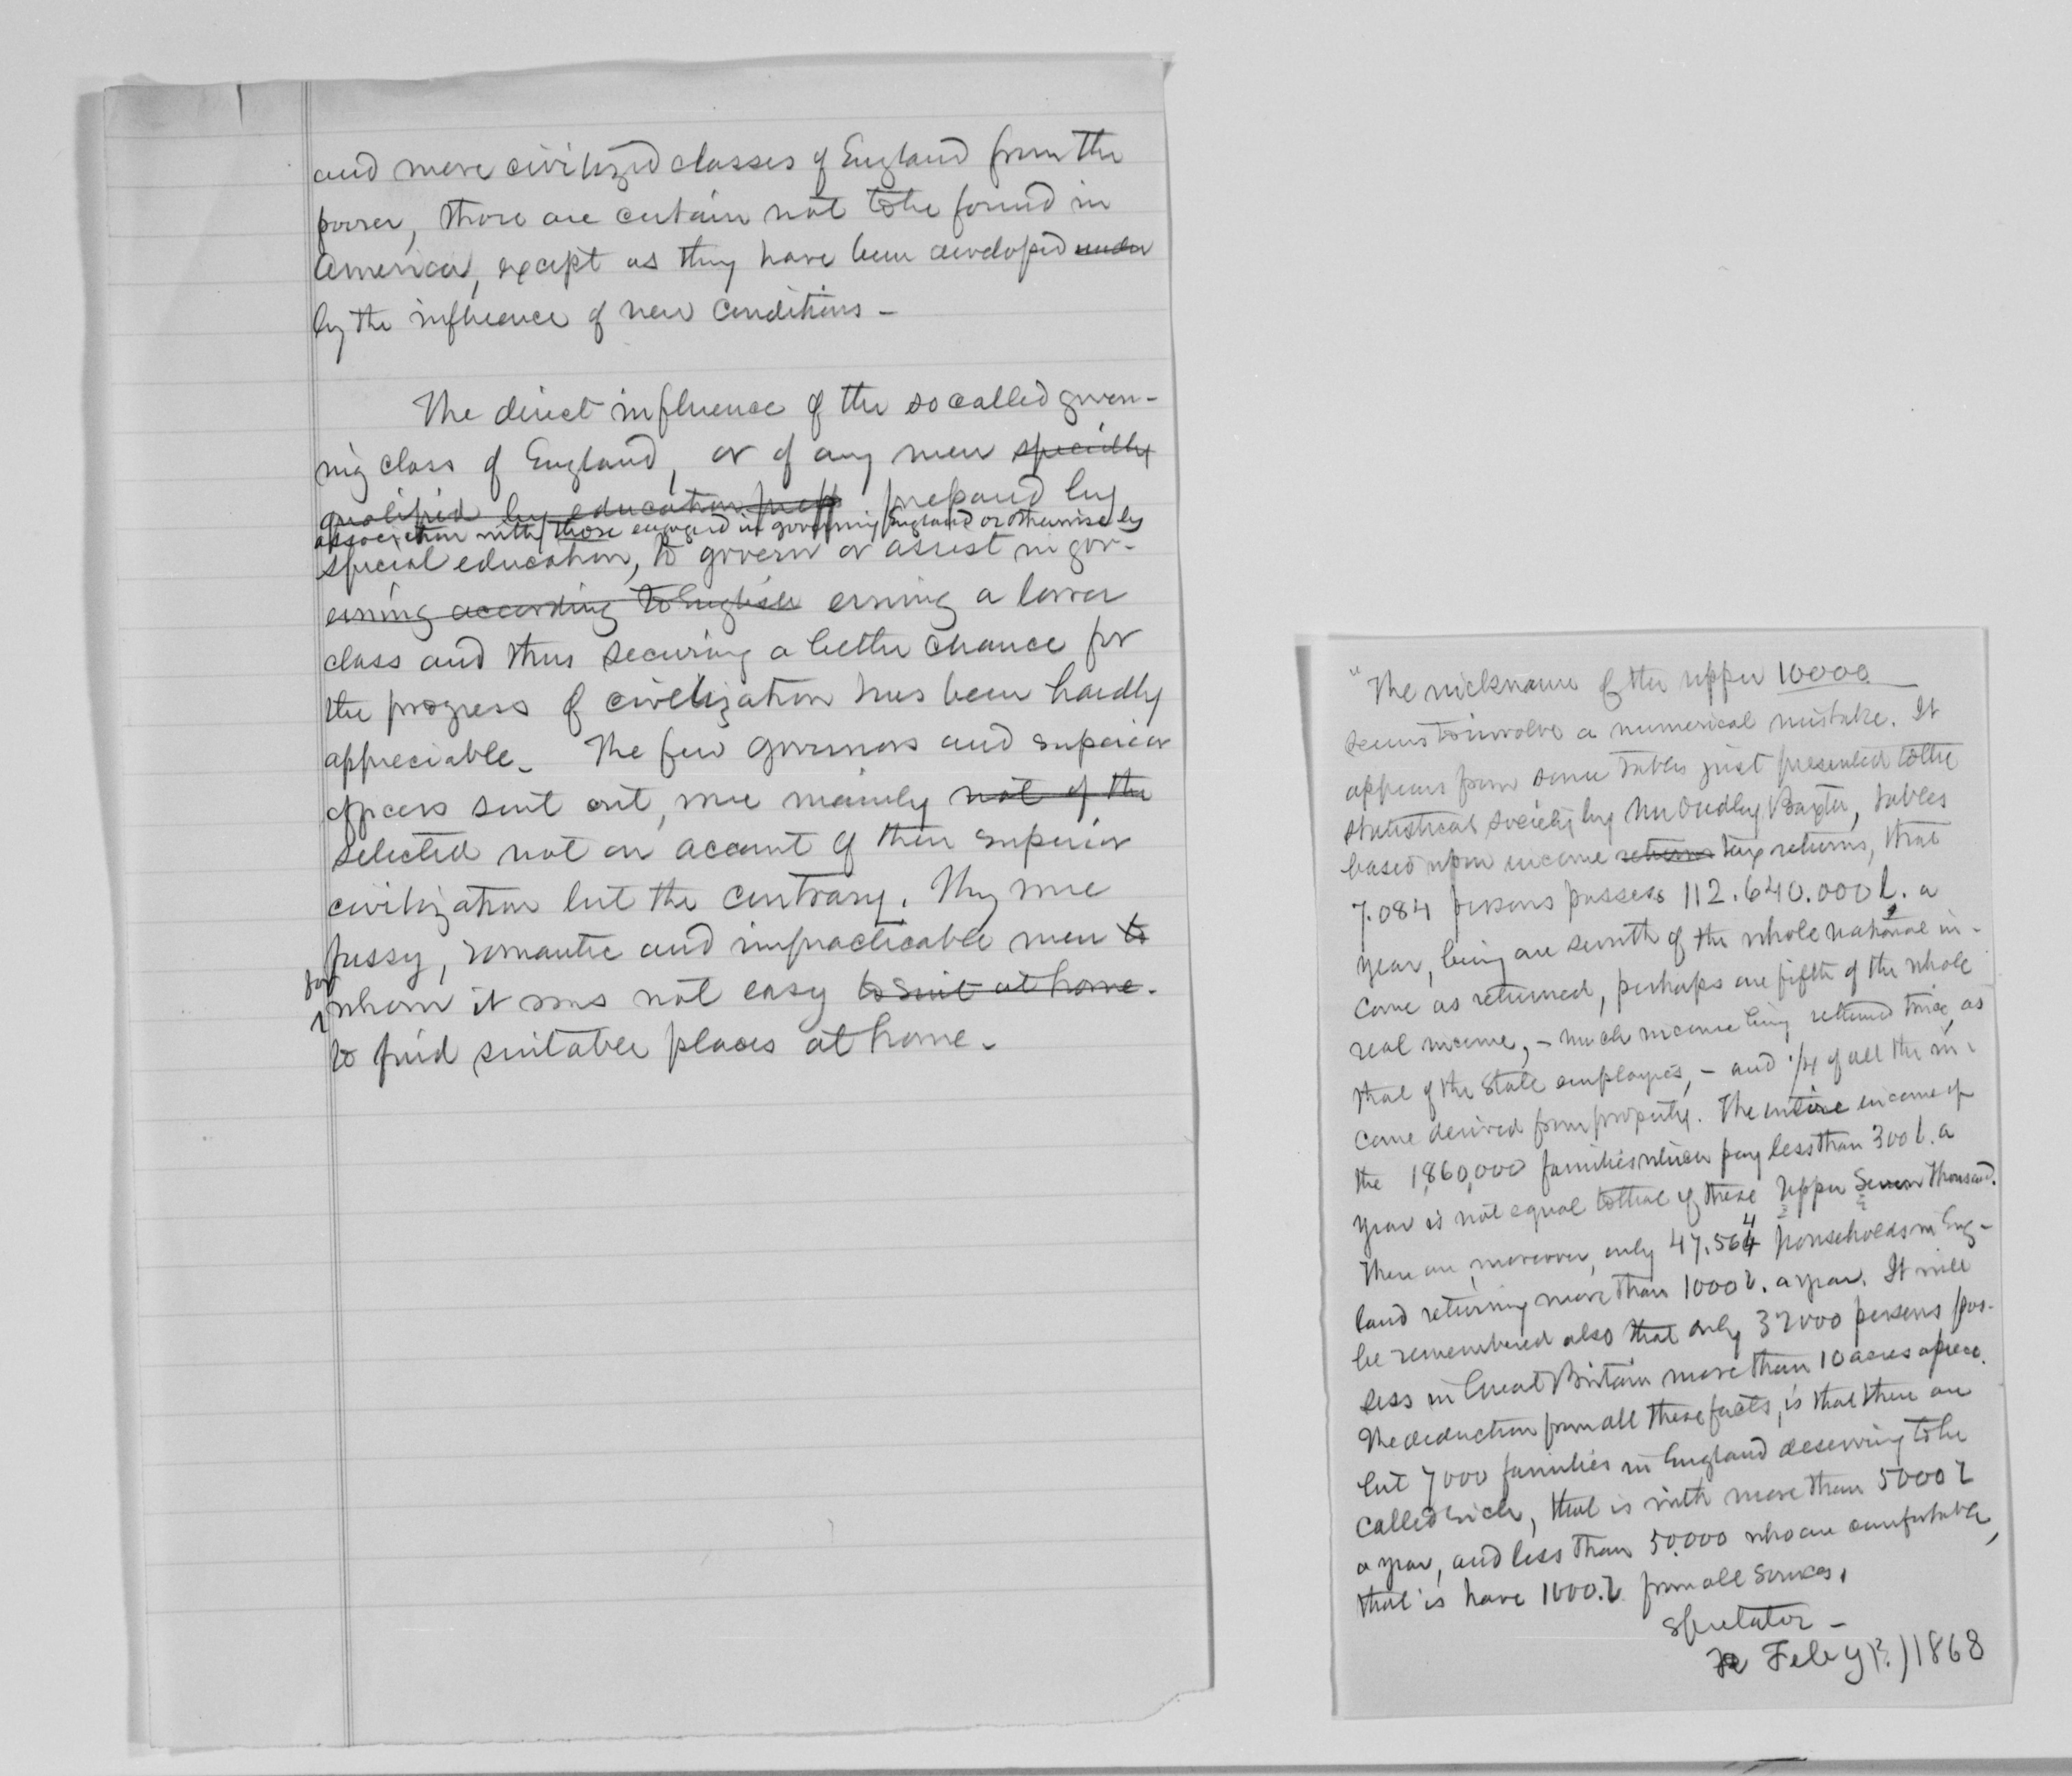 and more civilized classes of England from the
poorer, those are certain not to be found in
America, except as they have been developed under
by the influence of new conditions -
The direct influence of the so called gover-
nig class of England, or of any men specially
qualified by education prep prepared by
association with those engaged in governing England or otherwise by
special education, to govern or assist in gov-
erning according to English erning a lower
class and thus securing a better chance for
the progress of civilization has been hardly
appreciable. The few governors and superior
officers sent out, were mainly not of the
selected not on account of their superior
civilization but the contrary. They were
fussy, romantic and impracticable men to
for
whom it was not easy to suit at home.
to find suitable places at home.
"The nickname of the upper 10000
seems to involve a numerical mistake. It
appears from some tables just presented to the
Statistical Society by Mr Dudley Baxter, tables
based upon income returns tax returns, that
7.084 persons possess 112.640.000 l. a
year, being one seventh of the whole national in-
come as returned, perhaps one fifth of the whole
real income, - much income being returned twice, as
that of the State employés, - and 1/4 of all the in-
come derived from property. The entire income of
the 1,860,000 families which pay less than 300 l. a
year is not equal to that of these Upper Seven Thousand.
There are, moreover, only 47.564 4 households in Eng-
land returning more than 1000 l. a year. It will
be remembered also that only 32000 persons pos-
sess in Great Britain more than 10 acres apiece.
The deduction from all these facts, is that there are
but 7000 families in England deserving to be
called rich, that is with more than 5000 l
a year, and less than 50.000 who are comfortable,
that is have 1000. l from all sources.
Spectator -
Feby (?) 1868